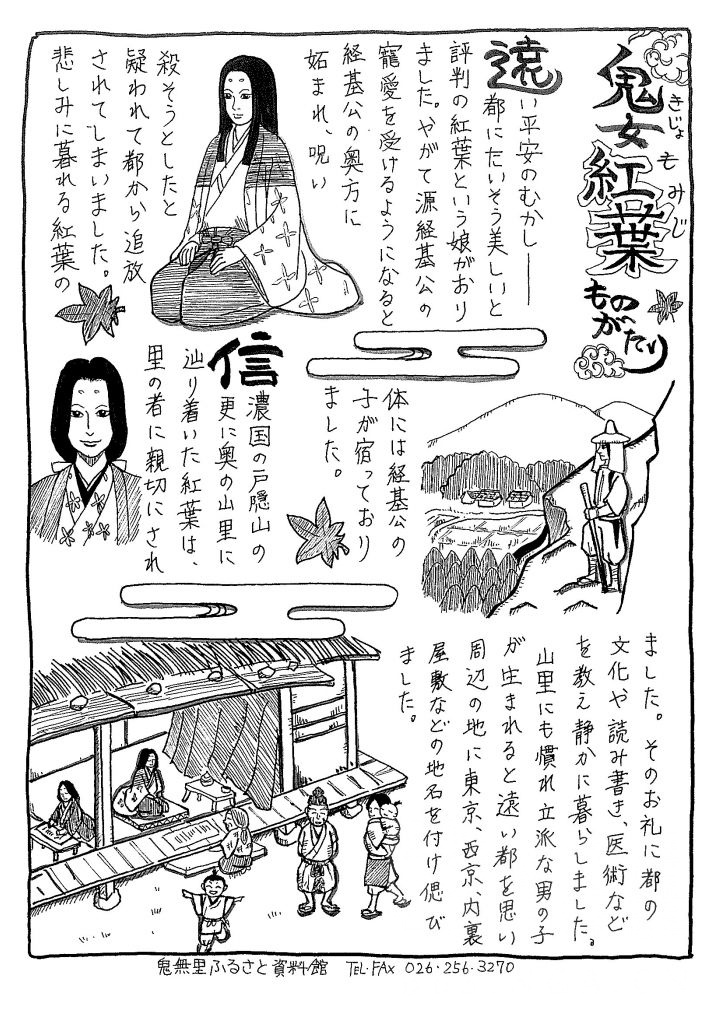 鬼女紅葉
きじょもみじ
ものがたり
遠い平安のむかし――
都にたいそう美しいと
評判の紅葉という娘がおり
ました。やがて源経基公の
寵愛を受けるようになると
経基公の奥方に
妬まれ、呪い
殺そうとしたと
疑われて都から追放
されてしまいました。
悲しみに暮れる紅葉の
体には経基公の
子が宿っており
ました。
信濃国の戸隠山の
更に奥の山里に
辿り着いた紅葉は、
里の者に親切にされ
ました。そのお礼に都の
文化や読み書き、医術など
を教え静かに暮らしました。
山里にも慣れ立派な男の子
が生まれると遠い都を思い
周辺の地に東京、西京、内裏
屋敷などの地名を付け偲び
ました。
鬼無里ふるさと資料館 TEL・FAX 026・256・3270